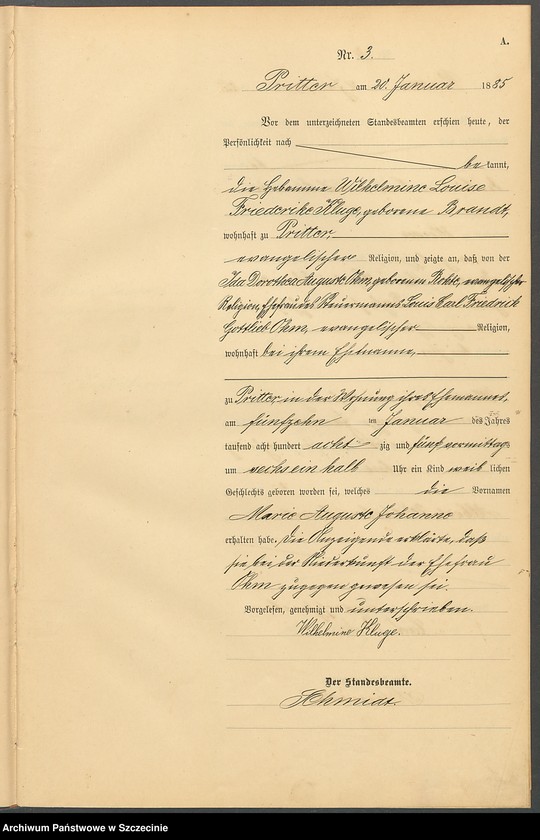 A.
Nr. 3.
Pritter am 20. Januar 1885
Vor dem unterzeichneten Standesbeamten erschien heute, der
Persönlichkeit nach
be kannt,
die Hebamme Wilhelmine Louise
Friederike Kluge, geborene Brandt,
wohnhaft zu Pritter
evangelischer Religion, und zeigte an, daß von der
Ida Dorothea Auguste Ohm, geborenen evangelischer
Religion, Ehefrau des Steuermanns Louis Carl Friedrich
Gottlieb Ohm, evangelischer Religion,
wohnhaft bei ihrem Ehemanne,
zu Pritter in der Wohnung ihres Ehemannes,
am fünfzehn ten Januar des Jahres
tausend acht hundert acht zig und fünf vormittags
um sechs ein halb Uhr ein Kind weib lichen
Geschlechts geboren worden sei, welches die Vornamen
Marie Auguste Johanne
erhalten habe. Die Anzeigende erklärte, daß
sie bei der Niederkunft der Ehefrau
Ohm zugegen gewesen sei.
Vorgelesen, genehmigt und unterschrieben.
Wilhelmine Kluge.
Der Standesbeamte.
Schmidt.
Archiwum Państwowe w Szczecinie